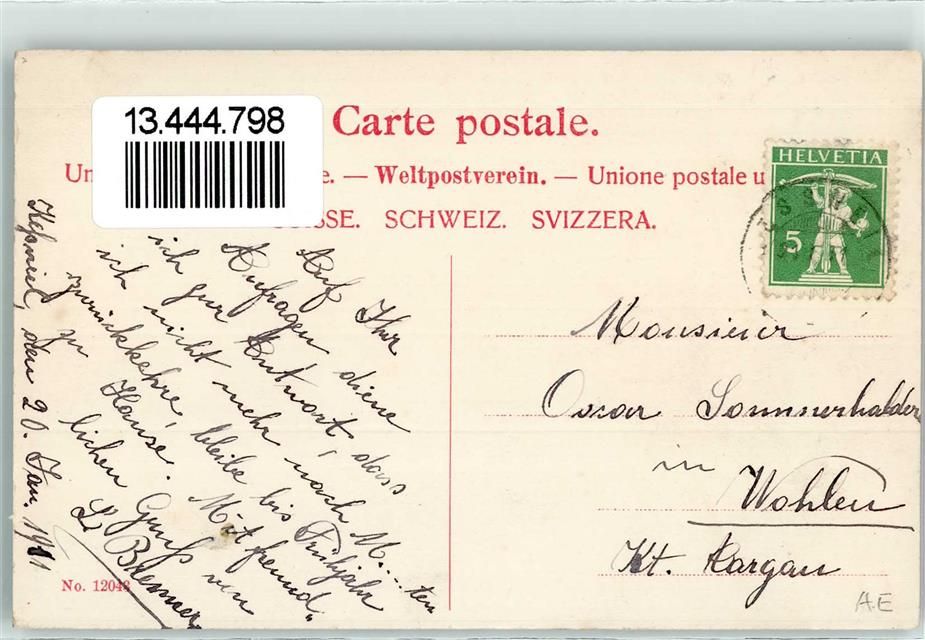 13.444.798
Carte postale.
Un e. — Weltpostverein. — Unione postale u
SUISSE. SCHWEIZ. SVIZZERA.
HELVETIA
5
Keßwil, den 20. Jan. 1911
Auf Ihr
Anfragen diene
ich zur Antwort, dass
ich nicht mehr nach M....ten
zurückkehre, bleibe bis Frühjahr
zu Hause. Mit freund„
lichen Gruß von
L. Brenner
Monsieur
Oscar Sommerhalder
in
Wohlen
Kt. Aargau
No. 12043
A.E